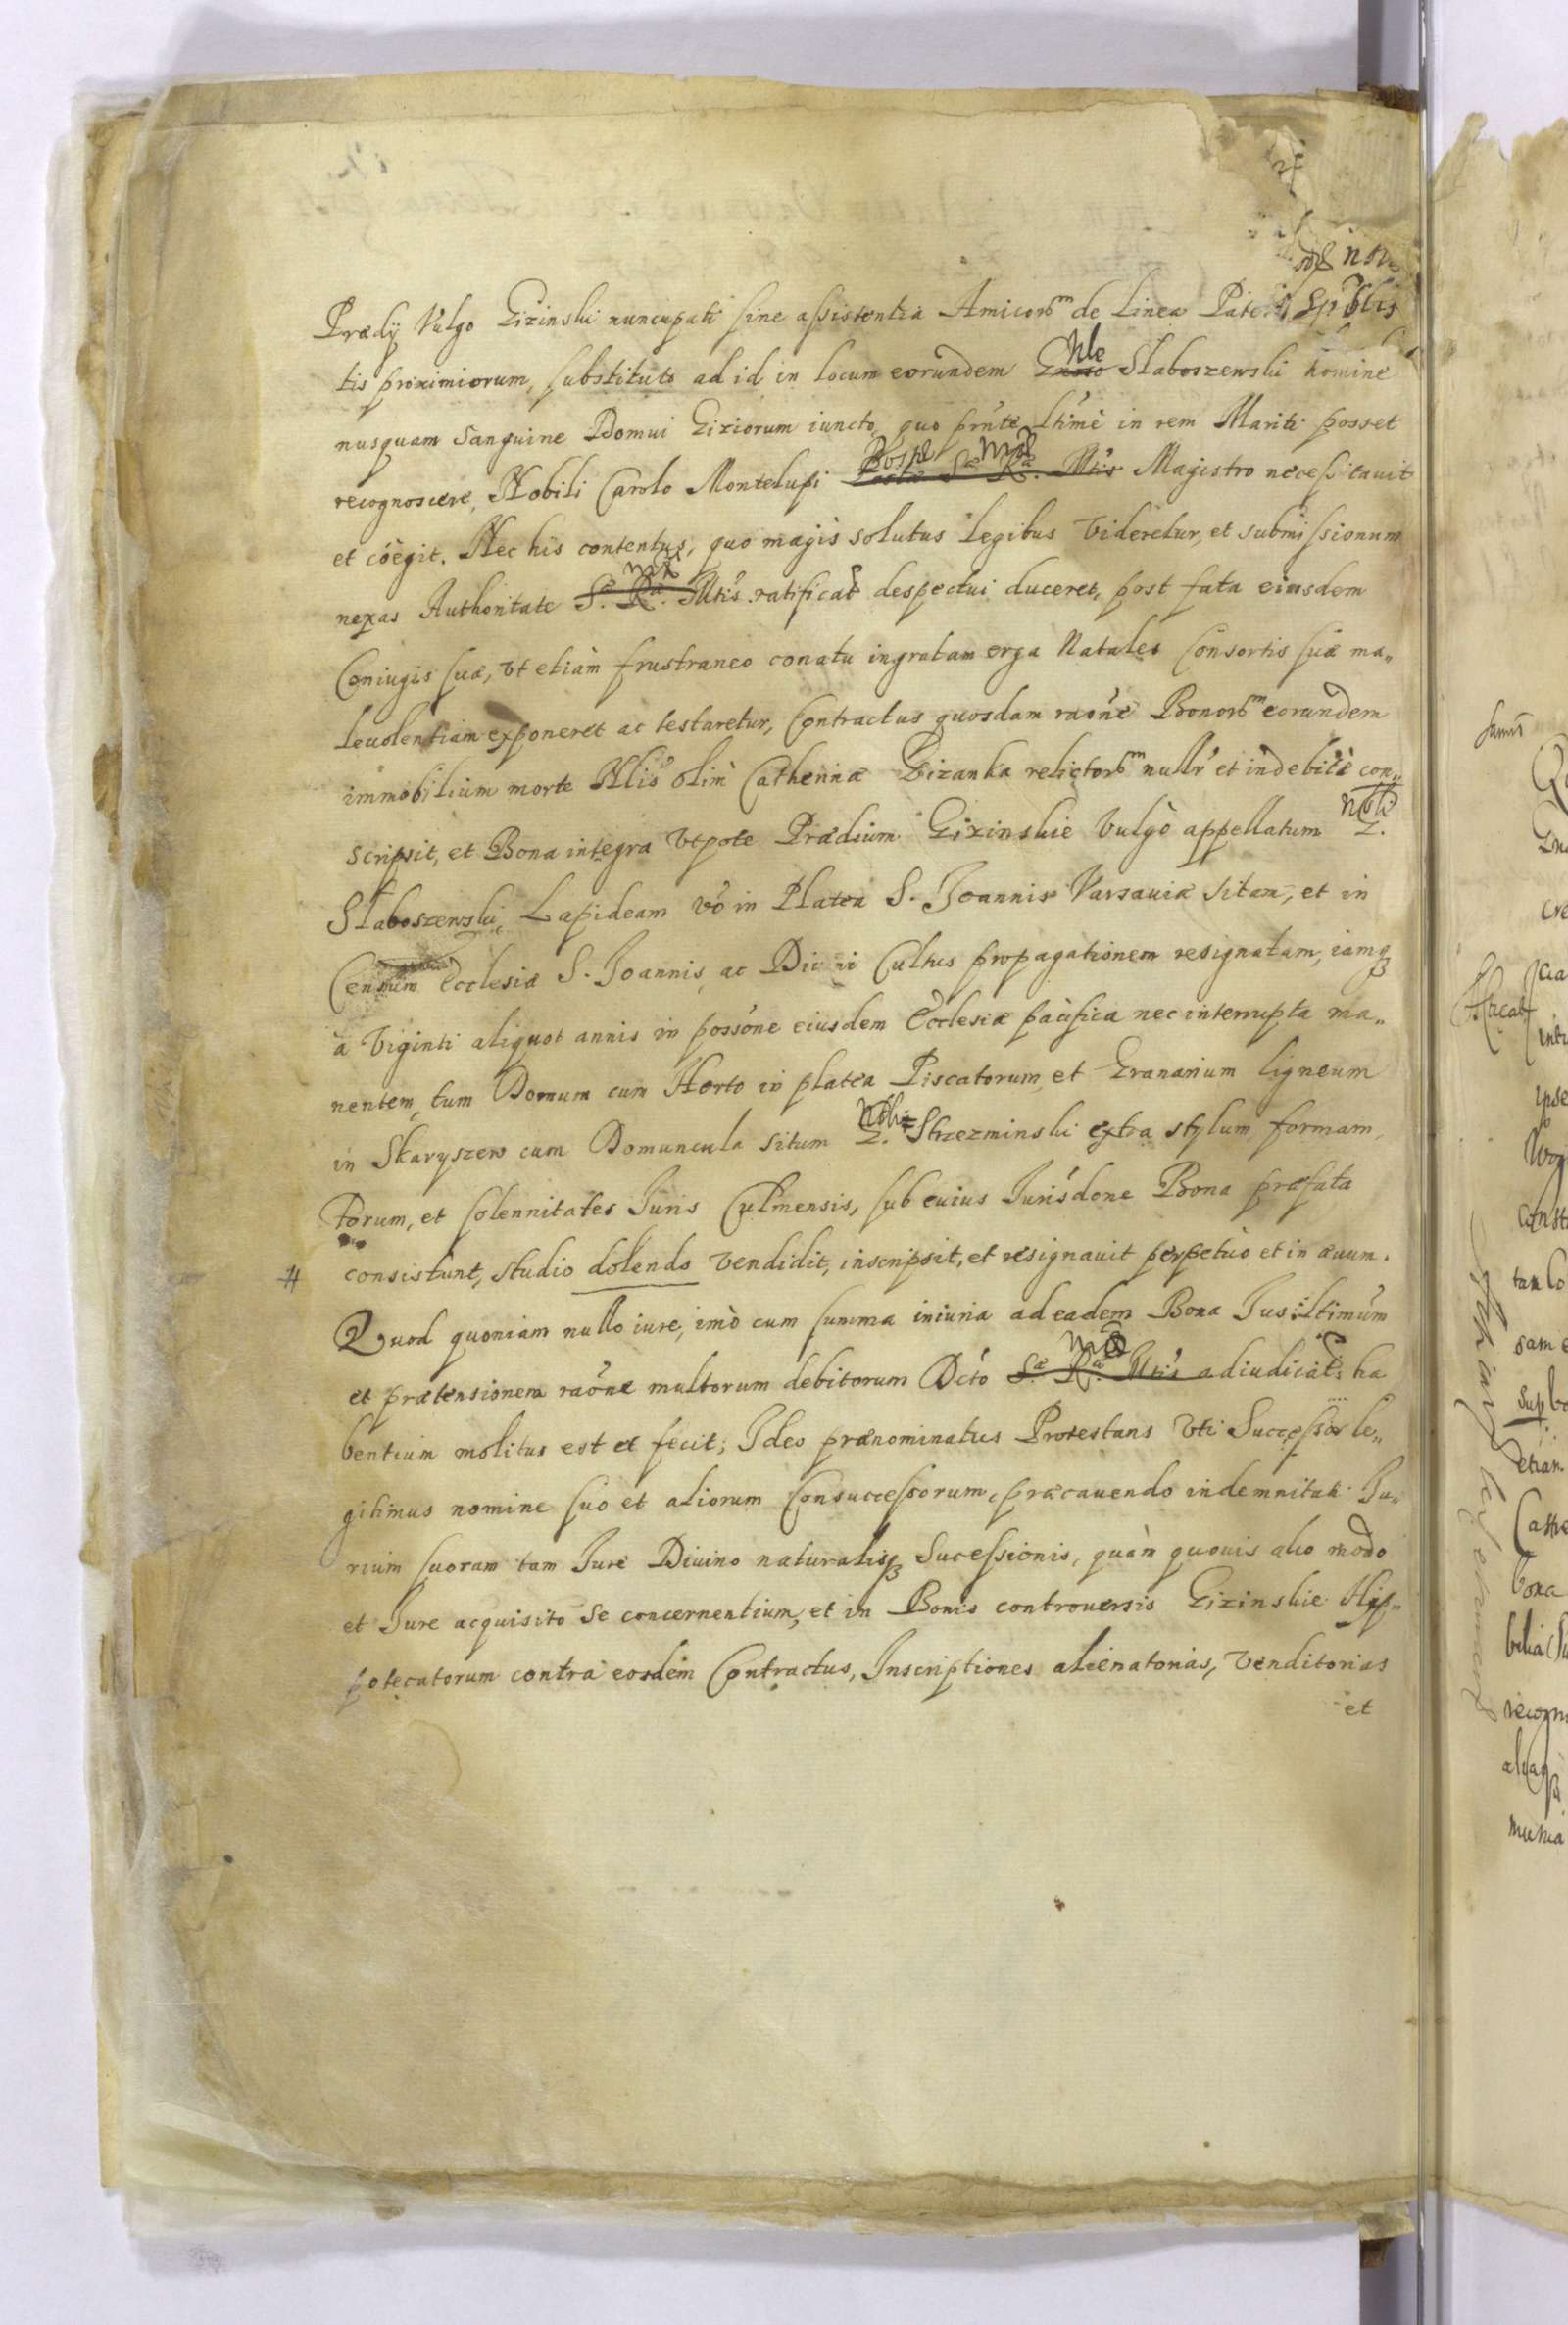 non
Prædij Vulgo Gizinski nuncupati sine assistentia Amicorū de Linea
tis proximiorum, substituto ad id in locum eorundem Nle Slaboszewski homine
nusquam Sanguine Domui Giziorum iuncto, quo prńte ltimè in rem Mariti posset
recognoscere, Nobili Carolo Montelupi Postæ Sæ Ræ. Mtis Magistro necessitauit
et cöegit. Nec his contentus, quo magis solutus legibus Videretur, et submissionum
nexas Authoritate Sæ. Ræ. Mtis ratificat despectui duceret, post fata eiusdem
Coniugis suæ, Vt etiàm frustraneo conatu ingratam erga Natales Consortis suæ ma„
leuolentiam exponeret ac testaretur, Contractus quosdam raóne Bonorū eorundem
immobilium morte Nlis olim Catherinæ Gizanka relictorū nullr et indebitè con„
scripsit, et Bona integra Vtpote Prædium Gizinskie Vulgò appellatum Nbli G.
Slaboszewski, Lapideam vó in Platea S. Joannis Varsauiæ sitam, et in
Censum Ecclesiæ S. Joannis, ac Diuini Cultus propagationem resignatam, iamqꝫ
a Viginti aliquot annis in possóne eiusdem Ecclesiæ pacifica nec interrupta ma„
nentem, tum Domum cum Horto in platea Piscatorum, et Granarium ligneum
in Skaryszew cum Domuncula situm Nbli G. Strzezminski extra stylum, formam,
Torum, et solennitates Juris Culmensis, sub cuius Jurisdone Bona præfata
# consistunt, studio dolendo Vendidit, inscripsit, et resignauit perpetuò et in æuum.
Quod quoniam nullo iure, imò cum summa iniuria ad eadem Bona Jus ltimum
et prætensionem raóne multorum debitorum Dctó Sæ Ræ. Mtis adiudicat: ha
bentium molitus est et fecit; Ideo prænominatus Protestans Vti Successor le„
gitimus nomine suo et aliorum Consuccessorum, præcauendo indemnitati Ju„
rium suorum tam Jure Diuino naturalisqꝫ Sucessionis, quàm quouis alio modo
et Jure acquisito se concernentium, et in Bonis controuersis Gizinskie Hip„
potecatorum contra eosdem Contractus, Inscriptiones alienatorias, Venditorias
et